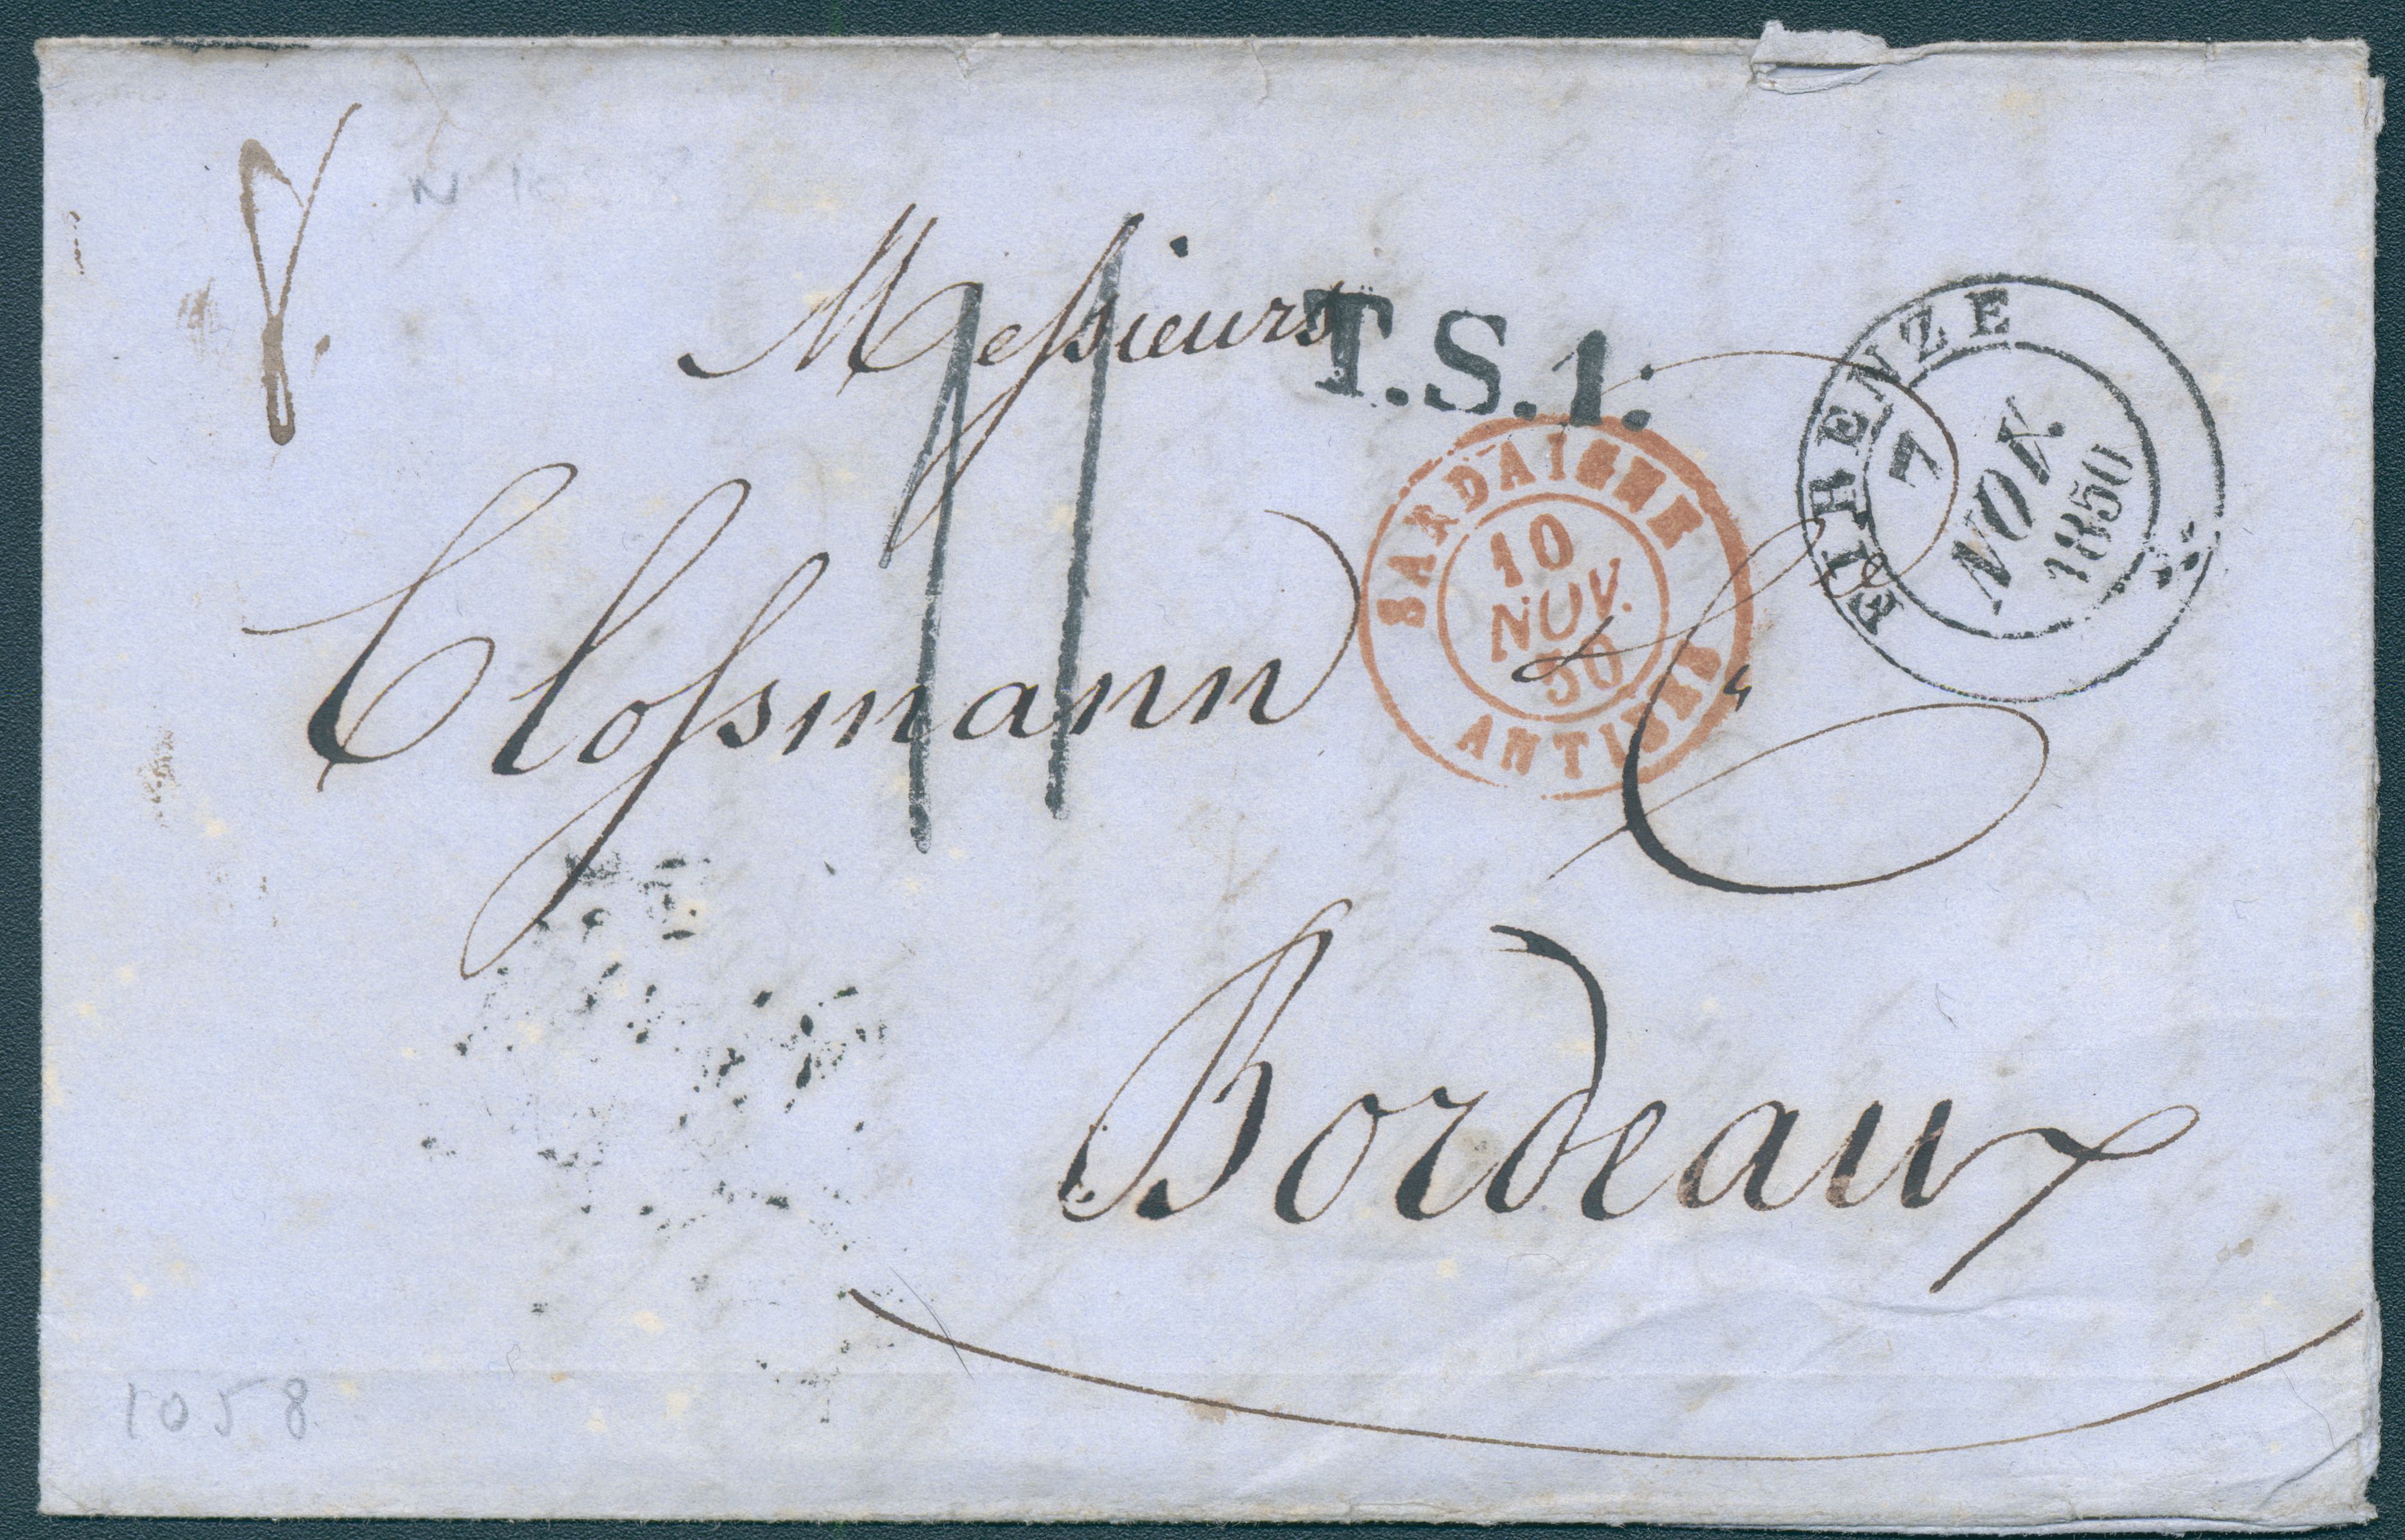 8.
N 1058
Messieurs
T.S.1:
FIRENZE
7
NOV.
1850
SARDAIGNE
10
NOV.
50
ANTIBES
11
Clossmann & Cº
Bordeaux
1058